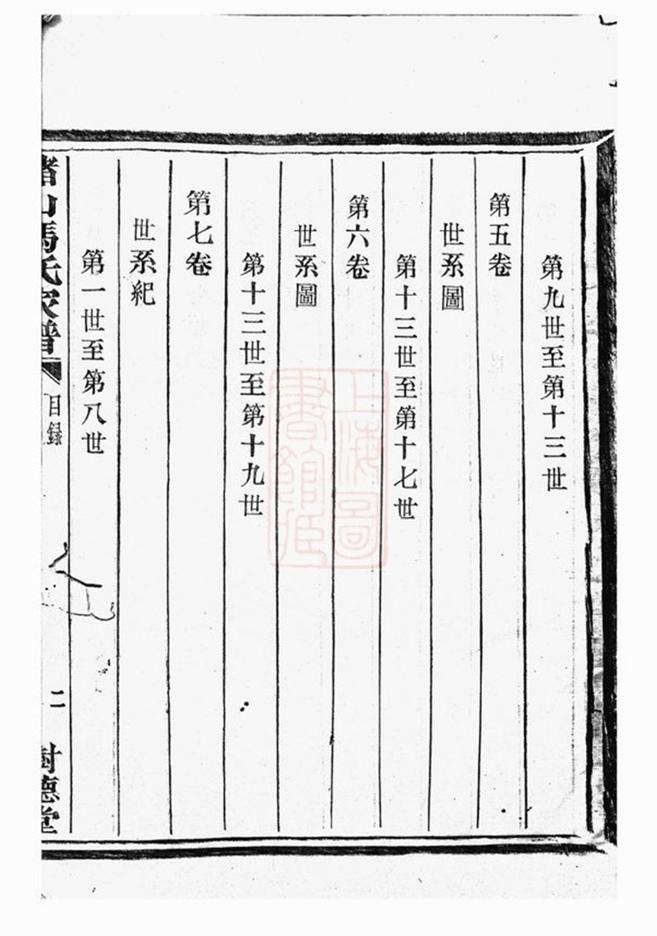 第九世至第十三世
第五卷
世系圖
第十三世至第十七世
第六卷
世系圖
第十三世至第十九世
第七卷
世系紀
第一世至第八世
山馬氏家譜
目錄
二
樹德堂
上海圖
書館藏